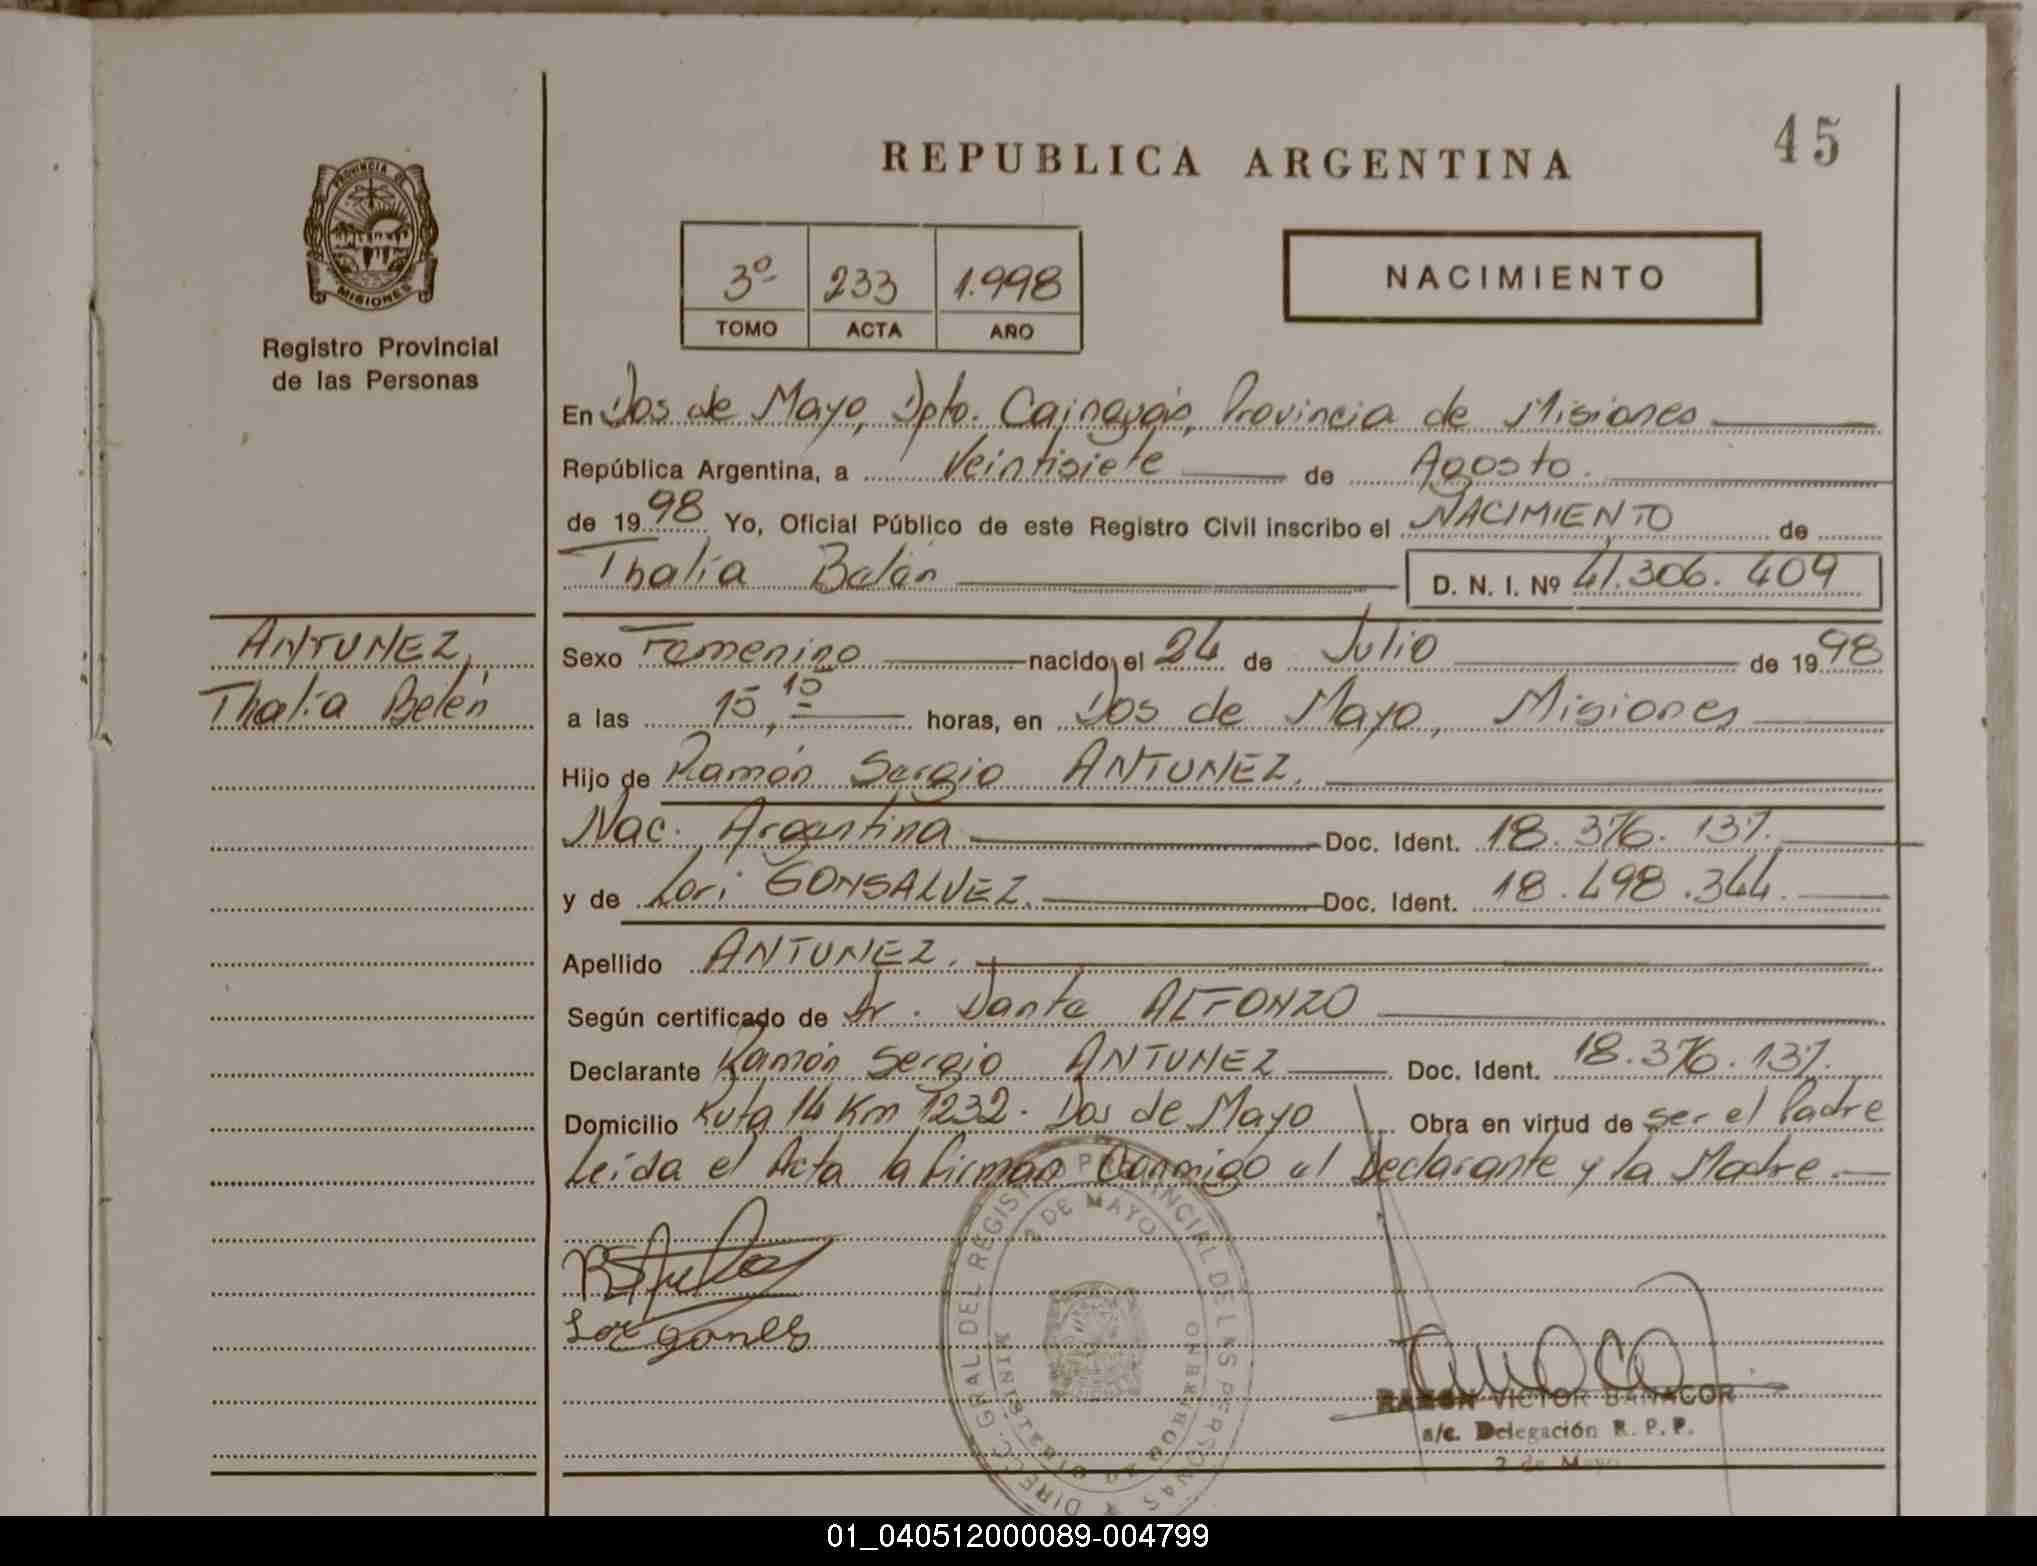 45
REPUBLICA ARGENTINA
PROVINCIA DE
MISIONES
Registro Provincial
de las Personas
3º 233 1.998
TOMO ACTA AÑO
NACIMIENTO
En Dos de Mayo, Dpto. Cainguás, Provincia de Misiones
República Argentina, a Veintisiete de Agosto.
de 1998 Yo, Oficial Público de este Registro Civil inscribo el NACIMIENTO de
Thalía Belén D. N. I. Nº 41.306.409
ANTUNEZ,
Thalía Belén
Sexo Femenino nacido el 24 de Julio de 1998
a las 15,15 horas, en Dos de Mayo, Misiones
Hijo de Ramón Sergio ANTUNEZ.
Nac. Argentina Doc. Ident. 18.376.137.
y de Lori GONSALVEZ. Doc. Ident. 18.498.344.
Apellido ANTUNEZ.
Según certificado de Dr. Dante ALFONZO
Declarante Ramón Sergio ANTUNEZ Doc. Ident. 18.376.137.
Domicilio Ruta 14 Km 1232. Dos de Mayo Obra en virtud de ser el Padre
Leída el Acta la firman Conmigo el Declarante y la Madre.
DIRECC. GRAL DEL REGISTRO PROVINCIAL DE LAS PERSONAS
2 DE MAYO
MINISTERIO DE GOBIERNO
RAMON VICTOR BANACOR
a/c. Delegación R. P. P.
2 de Mayo
01_040512000089-004799